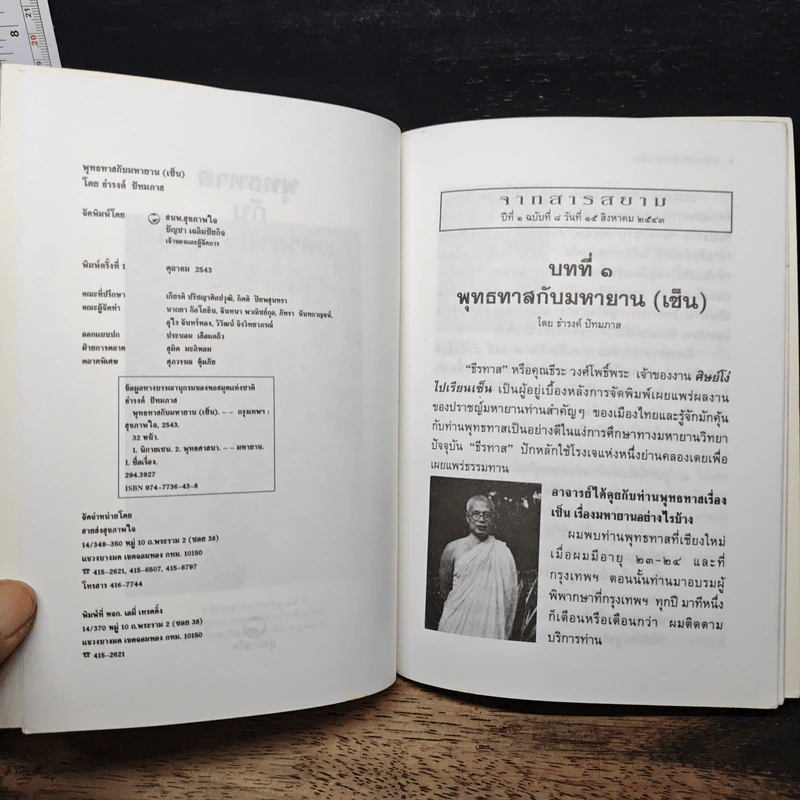 8
20
21
พุทธทาสกับมหายาน (เซ็น)
โดย ธำรงค์ ปัทมภาส
จัดพิมพ์โดย สนพ.สุขภาพใจ
บัญชา เฉลิมชัยกิจ
เจ้าของและผู้จัดการ
พิมพ์ครั้งที่ 1 ตุลาคม 2543
คณะที่ปรึกษา เกียรติ ปรัชญาศิลปวุฒิ, กิตติ ปิยพสุนทรา
คณะผู้จัดทำ นาถยา กัลโยธิน, จันทนา พาณิชย์กุล, ภัทรา นันทกาญจน์,
อุไร จันทร์ทอง, วิวัฒน์ จิรวิทยาภรณ์
ออกแบบปก ประนอม เสือแตถัว
ฝ่ายการตลาด สุมิต มะลิหอม
ตลาดพิเศษ ศุภวรรณ คุ้มภัย
ข้อมูลทางบรรณานุกรมของหอสมุดแห่งชาติ
ธำรงค์ ปัทมภาส
พุทธทาสกับมหายาน (เซ็น). -- กรุงเทพฯ :
สุขภาพใจ, 2543.
32 หน้า.
1. นิกายเซน. 2. พุทธศาสนา. -- มหายาน.
I. ชื่อเรื่อง.
294.3927
ISBN 974-7736-43-8
จัดจำหน่ายโดย
สายส่งสุขภาพใจ
14/349-350 หมู่ 10 ถ.พระราม 2 (ซอย 38)
แขวงบางมด เขตจอมทอง กทม. 10150
☎ 415-2621, 415-6507, 415-6797
โทรสาร 416-7744
พิมพ์ที่ หจก. เอมี่ เทรดดิ้ง
14/370 หมู่ 10 ถ.พระราม 2 (ซอย 38)
แขวงบางมด เขตจอมทอง กทม. 10150
☎ 415-2621
จากสารสยาม
ปีที่ ๑ ฉบับที่ ๘ วันที่ ๑๕ สิงหาคม ๒๕๔๓
บทที่ ๑
พุทธทาสกับมหายาน (เซ็น)
โดย ธำรงค์ ปัทมภาส
“ธีรทาส” หรือคุณธีระ วงศ์โพธิ์พระ เจ้าของงาน ศิษย์โง่
ไปเรียนเซ็น เป็นผู้อยู่เบื้องหลังการจัดพิมพ์เผยแพร่ผลงาน
ของปราชญ์มหายานท่านสำคัญๆ ของเมืองไทยและรู้จักมักคุ้น
กับท่านพุทธทาสเป็นอย่างดีในแง่การศึกษาทางมหายานวิทยา
ปัจจุบัน “ธีรทาส” ปักหลักใช้โรงเจแห่งหนึ่งย่านคลองเตยเพื่อ
เผยแพร่ธรรมทาน
อาจารย์ได้คุยกับท่านพุทธทาสเรื่อง
เซ็น เรื่องมหายานอย่างไรบ้าง
ผมพบท่านพุทธทาสที่เชียงใหม่
เมื่อผมมีอายุ ๒๓-๒๔ และที่
กรุงเทพฯ ตอนนั้นท่านมาอบรมผู้
พิพากษาที่กรุงเทพฯ ทุกปี มาทีหนึ่ง
ก็เดือนหรือเดือนกว่า ผมติดตาม
บริการท่าน